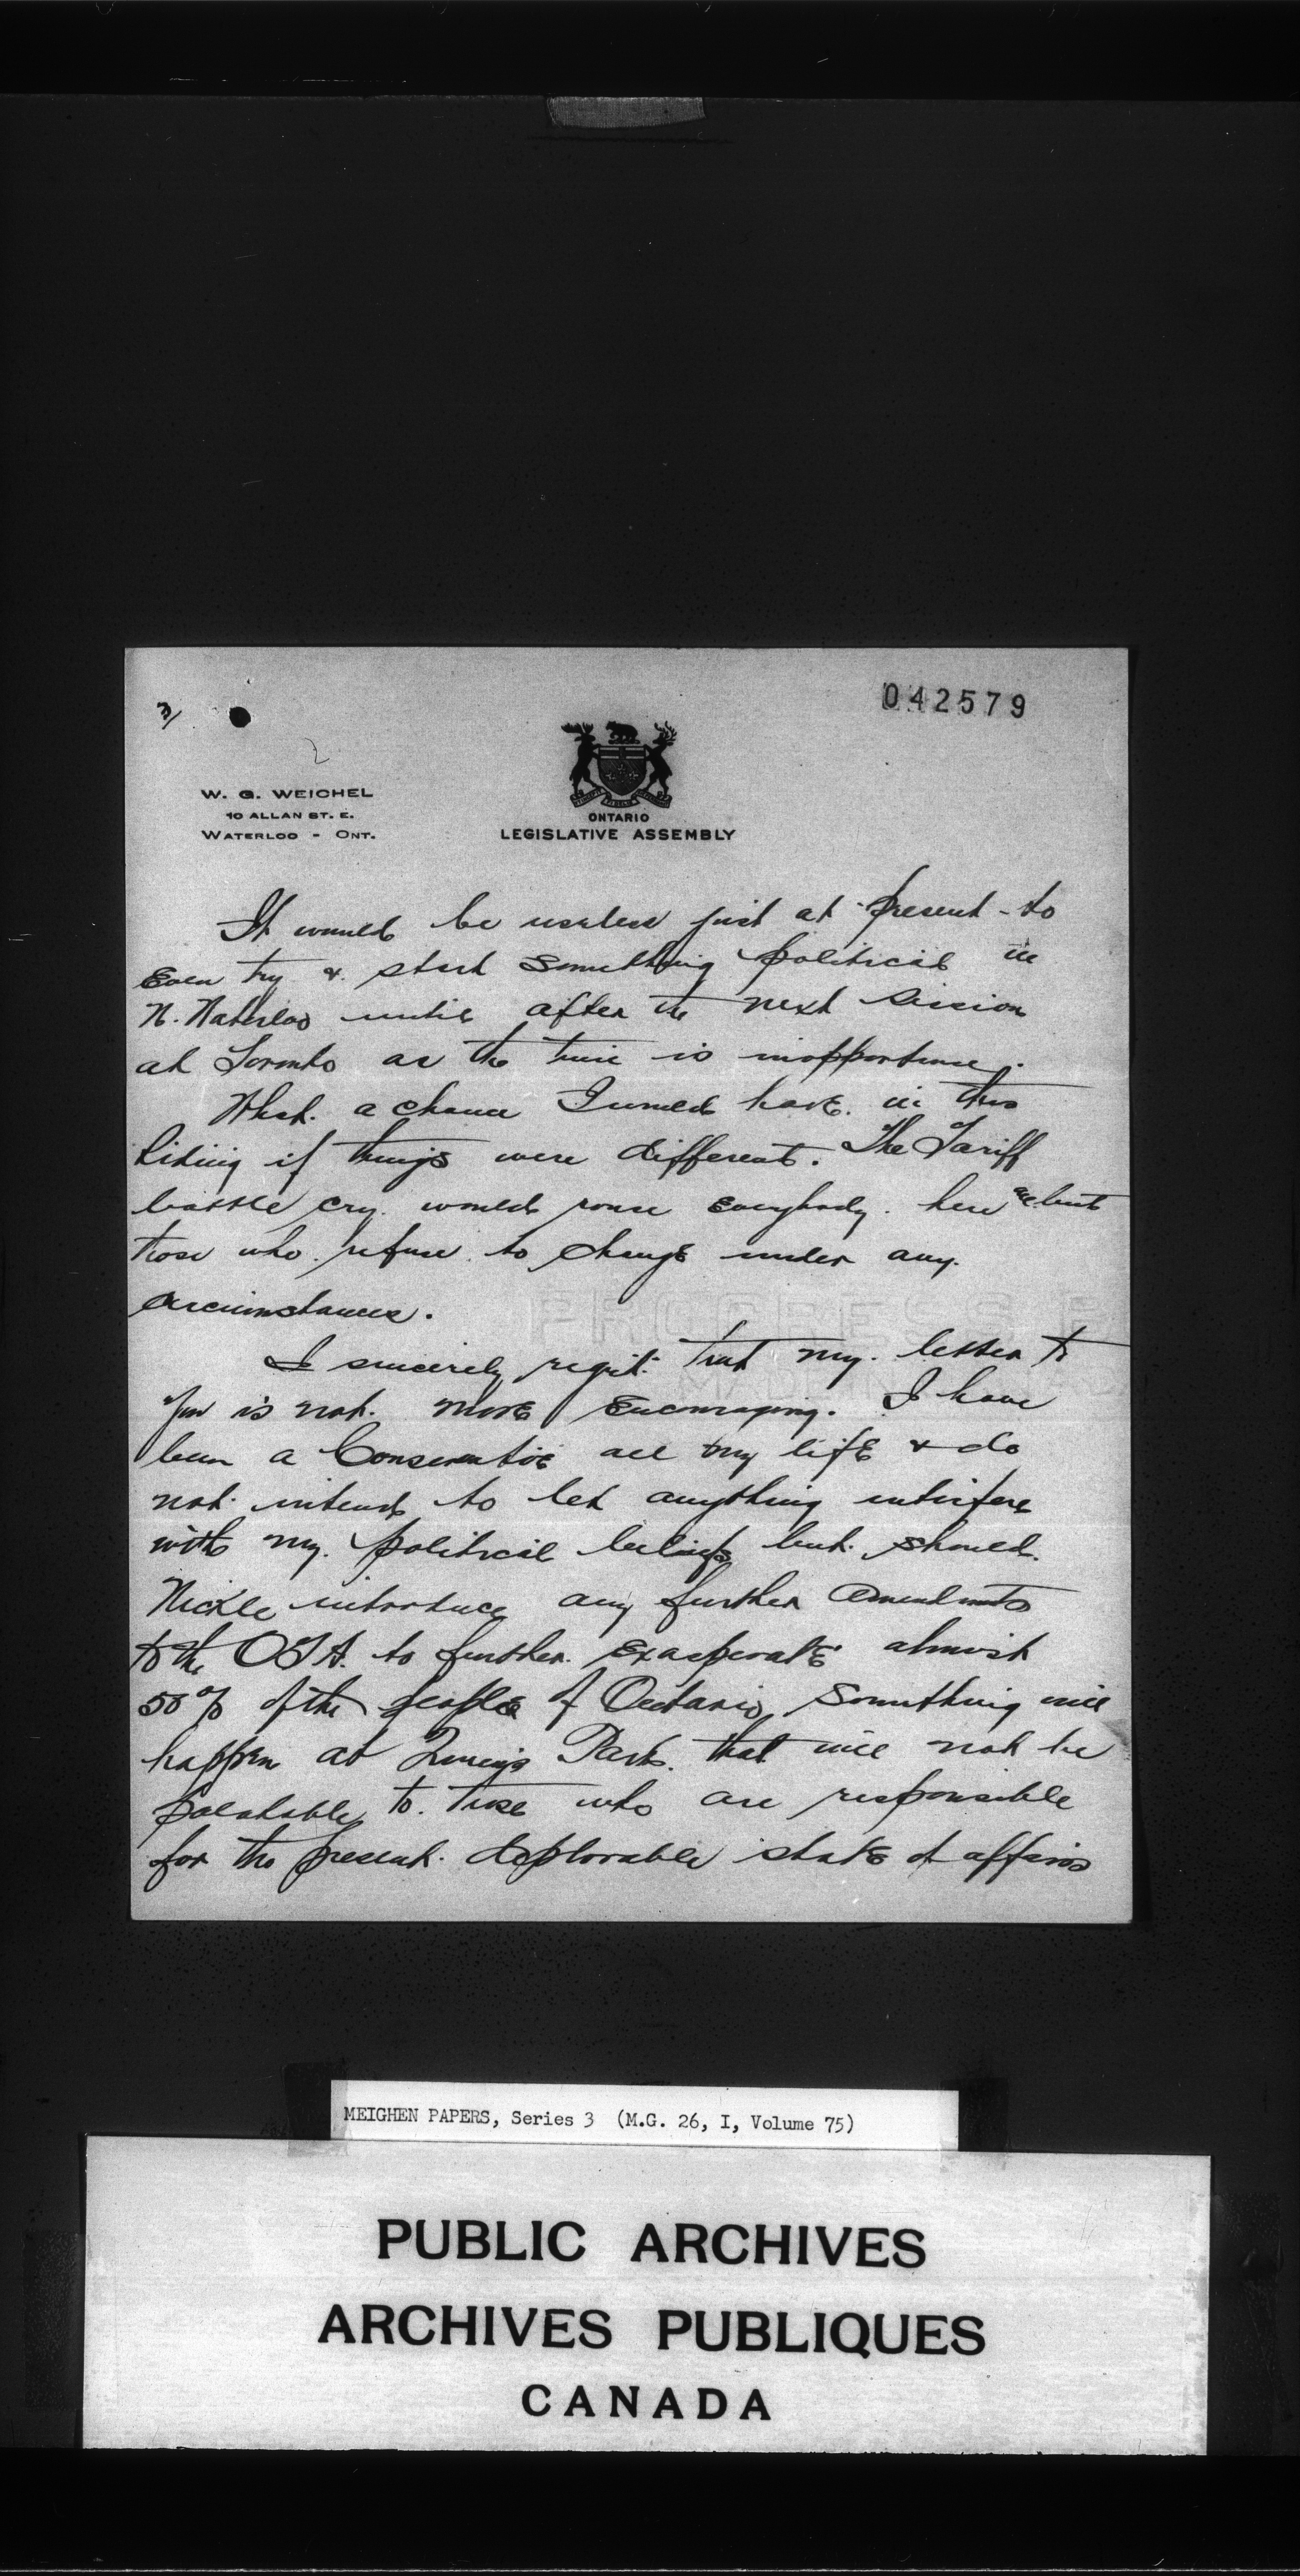 3/
042579
2
W. G. WEICHEL
10 ALLAN ST. E.
WATERLOO - ONT.
ONTARIO
LEGISLATIVE ASSEMBLY
It would be useless just at present - to
Even try & start something political in
N. Waterloo until after the next Session
at Toronto as the time is inopportune.
What a chance I would have in this
Riding if things were different. The Tariff
battle cry would rouse Everybody here all but
those who refuse to change under any
circumstances.
I sincerely regret that my letter to
you is not more Encouraging. I have
been a Conservative all my life & do
not intend to let anything interfere
with my political beliefs but should
Nickle introduce any further amendments
to the OTA. to further Exasperate almost
50% of the people of Ontario something will
happen at Queen's Park that will not be
palatable to those who are responsible
for the present deplorable state of affairs
PROGRESS
MEIGHEN PAPERS, Series 3 (M.G. 26, I, Volume 75)
PUBLIC ARCHIVES
ARCHIVES PUBLIQUES
CANADA